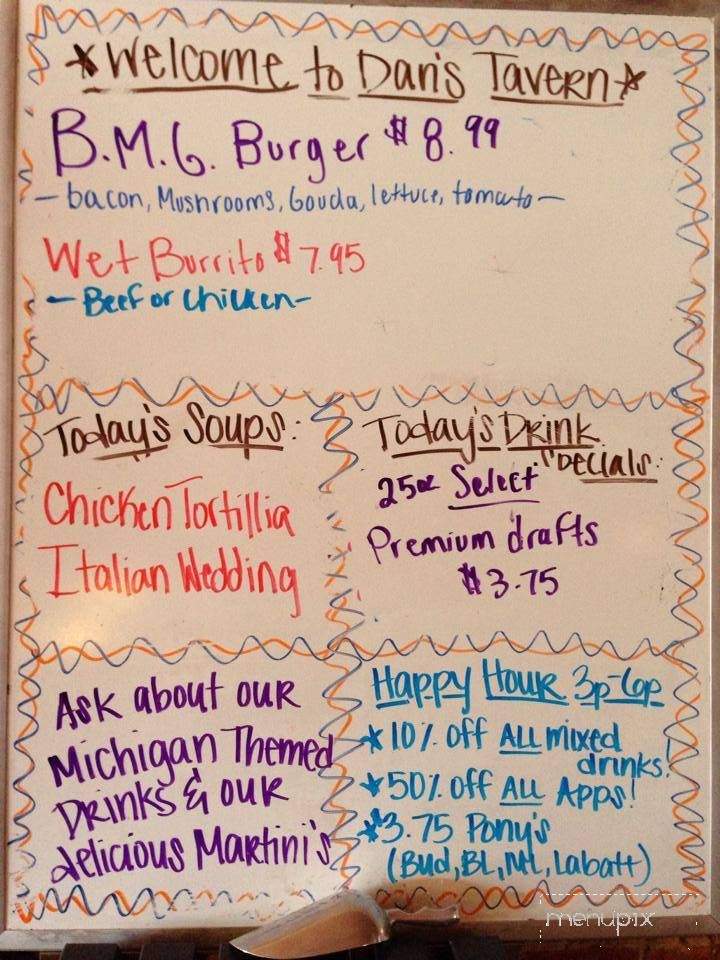 ★Welcome to Dan's Tavern★
B.M.G. Burger $8.99
-bacon, Mushrooms, Gouda, lettuce, tomato-
Wet Burrito $7.95
-Beef or Chicken-
Today's Soups:
Chicken Tortillia
Italian Wedding
Today's Drink
Specials:
25oz Select
Premium drafts
$3.75
Ask about our
Michigan Themed
Drinks & our
delicious Martini's
Happy Hour 3p-6p
★10% off ALL mixed
drinks!
★50% off ALL Apps!
★$3.75 Pony's
(Bud, BL, ML, Labatt)
menupix